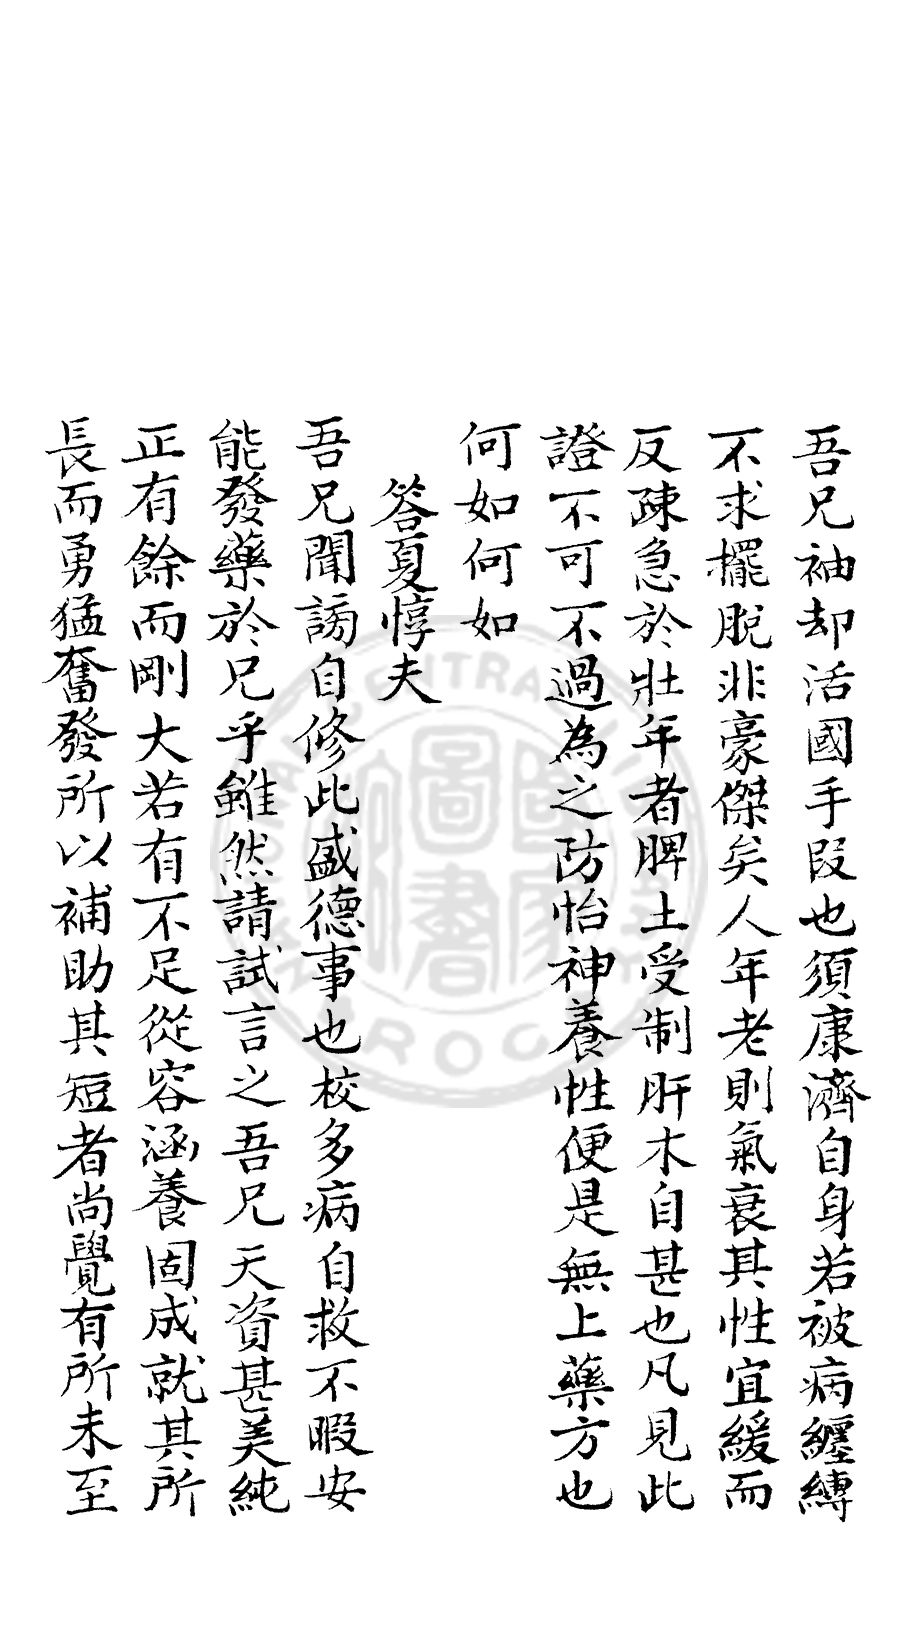 吾兄袖却活國手段也須康濟自身若被病纏縛
不求擺脫非豪傑矣人年老則氣衰其性宜緩而
反疎急於壯年者脾土受制肝木自甚也凡見此
證不可不過為之防怡神養性便是無上藥方也
何如何如
答夏惇夫
吾兄聞謗自修此盛德事也校多病自救不暇安
能發藥於兄乎雖然請試言之吾兄天資甚美純
正有餘而剛大若有不足從容涵養固成就其所
長而勇猛奮發所以補助其短者尚覺有所未至